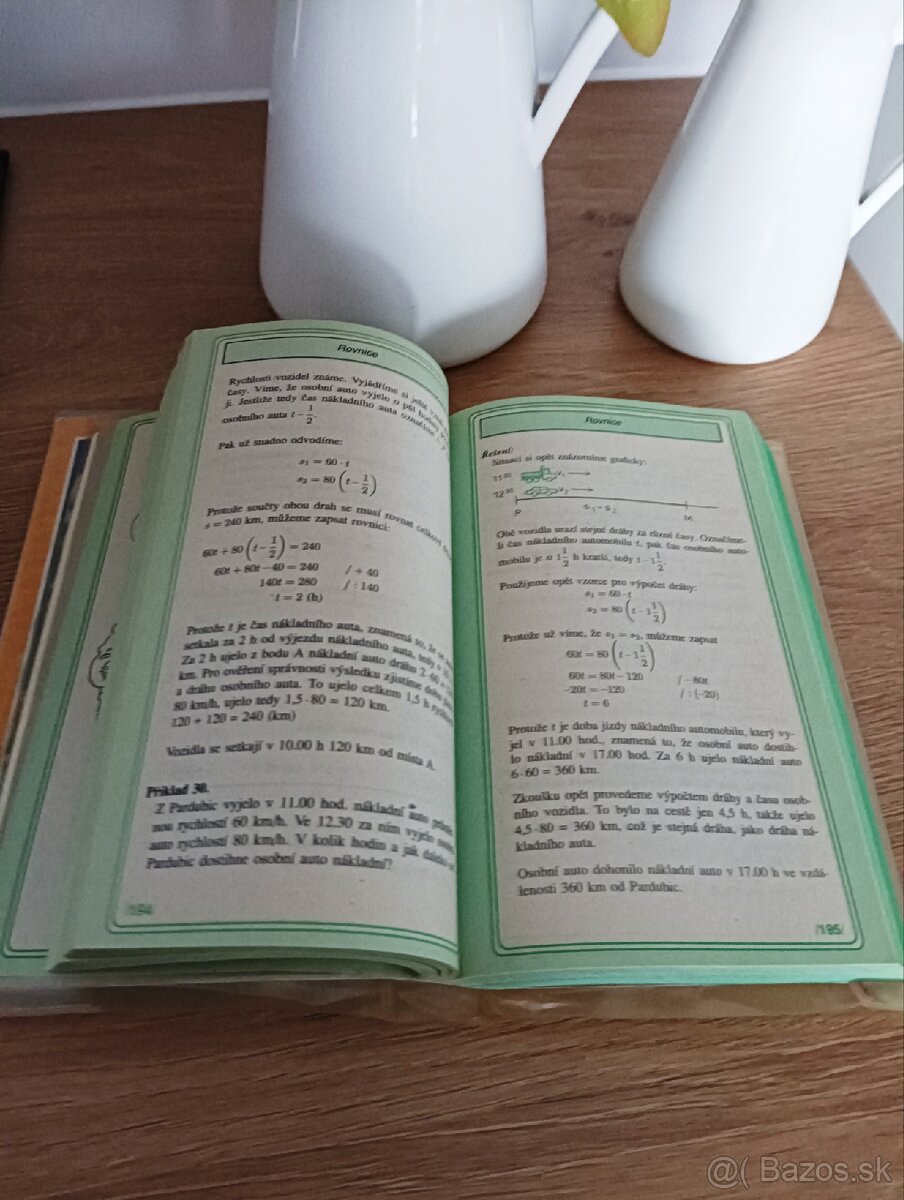 Rovnice
Rychlosti vozidel známe. Vyjádříme si ještě
časy. Víme, že osobní auto vyjelo o půl hodiny
ji. Jestliže tedy čas nákladního auta označíme
osobního auta t - 1/2.
Pak už snadno odvodíme:
s₁ = 60 · t
s₂ = 80 (t - 1/2)
Protože součty obou drah se musí rovnat celkové
s = 240 km, můžeme zapsat rovnici:
60t + 80 (t - 1/2) = 240
60t + 80t - 40 = 240 / + 40
140t = 280 / : 140
t = 2 (h)
Protože t je čas nákladního auta, znamená to, že se
setkala za 2 h od výjezdu nákladního auta, tedy v
Za 2 h ujelo z bodu A nákladní auto dráhu 2 · 60
km. Pro ověření správnosti výsledku zjistíme
a dráhu osobního auta. To ujelo celkem 1,5 h
80 km/h, ujelo tedy 1,5 · 80 = 120 km.
120 + 120 = 240 (km)
Vozidla se setkají v 10.00 h 120 km od místa A.
Příklad 30.
Z Pardubic vyjelo v 11.00 hod. nákladní auto
nou rychlostí 60 km/h. Ve 12.30 za ním vyjelo
auto rychlostí 80 km/h. V kolik hodin a jak daleko
Pardubic dostihne osobní auto nákladní?
/194
Rovnice
Řešení:
Situaci si opět znázorníme graficky:
11⁰⁰ v₁
12³⁰ v₂
P s₁ = s₂ M
Obě vozidla urazí stejné dráhy za různé časy. Označíme-
li čas nákladního automobilu t, pak čas osobního auto-
mobilu je o 1 1/2 h kratší, tedy t - 1 1/2.
Použijeme opět vzorce pro výpočet dráhy:
s₁ = 60 · t
s₂ = 80 (t - 1 1/2)
Protože už víme, že s₁ = s₂, můžeme zapsat
60t = 80 (t - 1 1/2)
60t = 80t - 120 / - 80t
-20t = -120 / : (-20)
t = 6
Protože t je doba jízdy nákladního automobilu, který vy-
jel v 11.00 hod., znamená to, že osobní auto dostih-
lo nákladní v 17.00 hod. Za 6 h ujelo nákladní auto
6 · 60 = 360 km.
Zkoušku opět provedeme výpočtem dráhy a času osob-
ního vozidla. To bylo na cestě jen 4,5 h, takže ujelo
4,5 · 80 = 360 km, což je stejná dráha, jako dráha ná-
kladního auta.
Osobní auto dohonilo nákladní auto v 17.00 h ve vzdá-
lenosti 360 km od Pardubic.
/195/
@( Bazos.sk